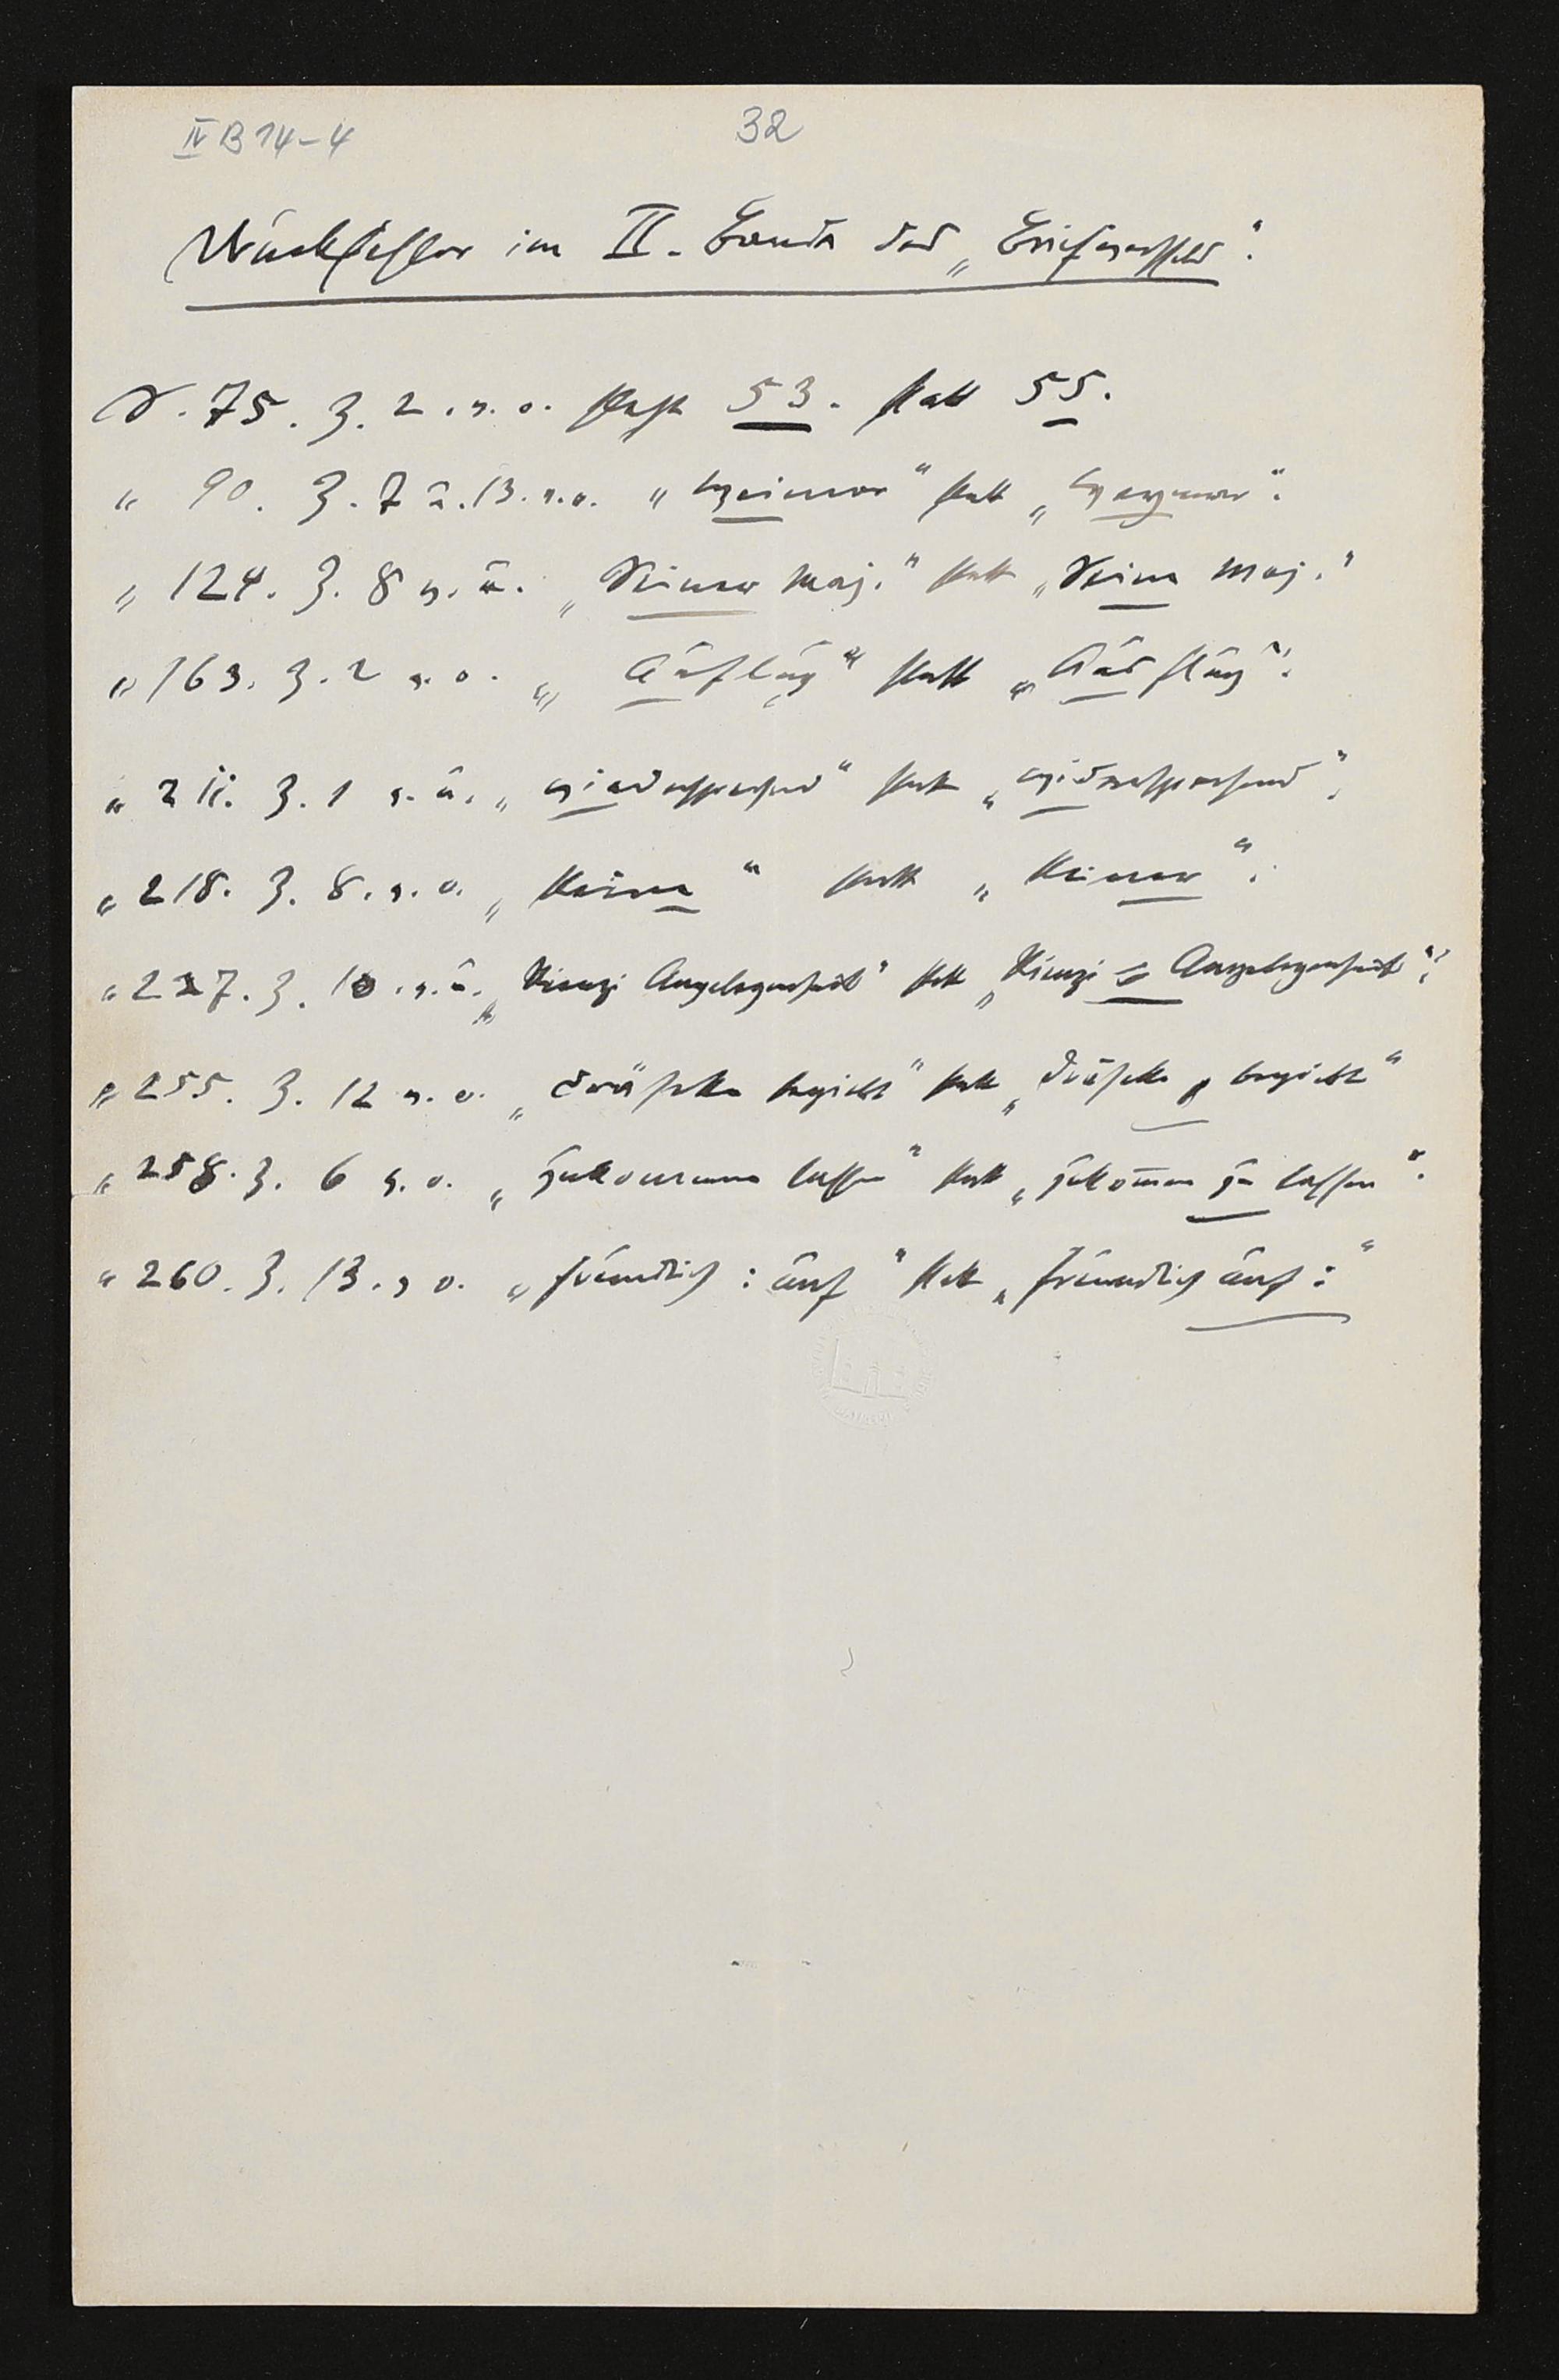 IV B 14-4
32
Druckfehler im II. Bande des „Briefwechsels“.
S. 75. Z. 2. v. o. steht 53. statt 55.
„ 90. Z. 7 u. 13. v. o. „Weimar“ statt „Weymar“.
„ 124. Z. 8 v. u. „Seiner Maj.“ statt „Seine Maj.“
„ 163. Z. 2 v. o. „Aufflug“ statt „Ausflug“.
„ 211. Z. 1 v. u. „wiedersprechend“ statt „widersprechend“.
„ 218. Z. 8. v. o. „Keine“ statt „Keiner“.
„ 227. Z. 10. v. u. „Rienzi Angelegenheit“ statt „Rienzi = Angelegenheit“.
„ 255. Z. 12 v. o. „Dräseke begielt“ statt „Dräseke, begielt“
„ 258. Z. 6 v. o. „zukommen lassen“ statt „zukom̄en zu lassen“.
„ 260. Z. 13. v o. „freundlich: auf“ statt „freundlich auf:“